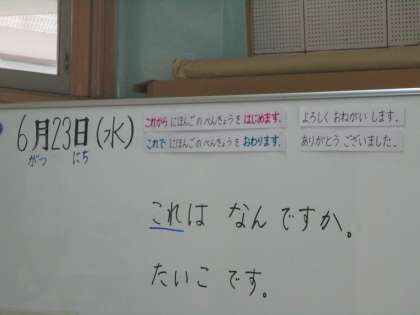 6月23日(水)
がつ にち
これから にほんごの べんきょうを はじめます。
よろしく おねがい します。
これで にほんごの べんきょうを おわります。
ありがとう ございました。
これは なんですか。
たいこ です。